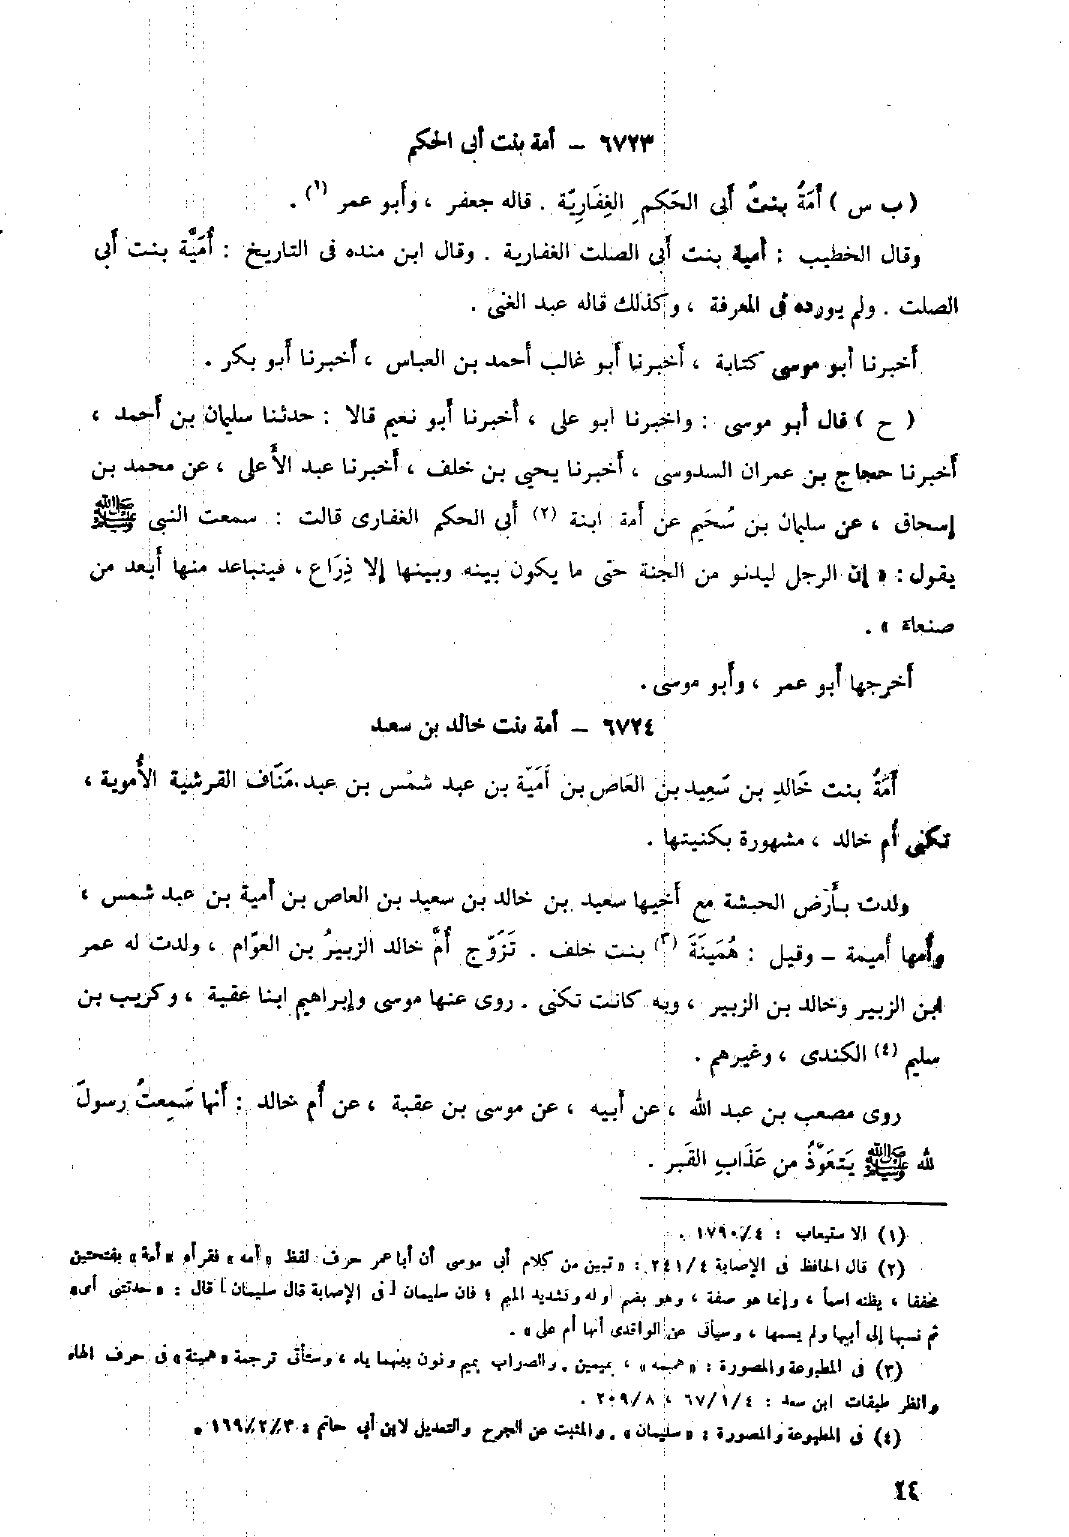 ٦٧٢٣ – أمة بنت أبى الحكم
( ب س ) أَمَةُ بنتُ أَبى الحَكمِ الغِفَارِيّة . قاله جعفر ، وأَبو عمر (١) .
وقال الخطيب : أمية بنت أَبى الصلت الغفارية . وقال ابن منده فى التاريخ : أُمَيَّة بنت أَبى
الصلت . ولم يورده فى المعرفة ، وكذلك قاله عبد الغنى .
أَخبرنا أبو موسى كتابة ، أَخبرنا أَبو غالب أحمد بن العباس ، أَخبرنا أَبو بكر .
( ح ) قال أَبو موسى : واخبرنا ابو على ، أَخبرنا أَبو نعيم قالا : حدثنا سليمان بن أَحمد ،
أَخبرنا حجاج بن عمران السدوسى ، أَخبرنا يحيى بن خلف ، أَخبرنا عبد الأَعلى ، عن محمد بن
إسحاق ، عن سليمان بن سُحَيم عن أَمة ابنة (٢) أَبى الحكم الغفارى قالت : سمعت النبى ﷺ
يقول : « إن الرجل ليدنو من الجنة حتى ما يكون بينه وبينها إلا ذِرَاع ، فيتباعد منها أَبعد من
صنعاء » .
أَخرجها أَبو عمر ، وأَبو موسى .
٦٧٢٤ – أمة بنت خالد بن سعيد
أَمَةُ بنت خَالدِ بن سَعِيد بن العَاص بن أُمَيّة بن عبد شمْس بن عبد مَنَاف القرشية الأُموية ،
تكنى أُم خالد ، مشهورة بكنيتها .
ولدت بأَرض الحبشة مع أَخيها سعيد بن خالد بن سعيد بن العاص بن أُمية بن عبد شمس ،
وأُمها أُميمة – وقيل : هُمَينَةَ (٣) بنت خلف . تَزَوّج أُمَّ خالد الزبيرُ بن العوّام ، ولدت له عمر
ابن الزبير وخالد بن الزبير ، وبه كانت تكنى . روى عنها موسى وإبراهيم ابنا عقبة ، وكريب بن
سليم (٤) الكندى ، وغيرهم .
روى مصعب بن عبد الله ، عن أَبيه ، عن موسى بن عقبة ، عن أُم خالد : أَنها سَمِعتُ رسولَ
لله ﷺ يَتعَوّذُ من عَذَابِ القَبر .
(١) الاستيعاب : ١٧٩٠/٤ .
(٢) قال الحافظ فى الإصابة ٢٤١/٤ : « تبين من كلام أبى موسى أن أبا عمر حرف لفظ « أمه » فقرأه « أمة » بفتحتين
مخففا ، يظنه اسماً ، وإنما هو صفة ، وهو بضم أوله وتشديد الميم ؛ فان سليمان [ فى الإصابة قال سليمان ] قال : « حدثتنى أمى»
ثم نسبها إلى أبيها ولم يسمها ، وسيأتى عن الواقدى أنها أم على » .
(٣) فى المطبوعة والمصورة : « هميمه » ، بميمين . والصواب بميم ونون بينهما ياء ، وستأتى ترجمة « همينة » فى حرف الهاء
وانظر طبقات ابن سعد : ٦٧/١/٤ ، ٢٠٩/٨ .
(٤) فى المطبوعة والمصورة : « سليمان » . والمثبت عن الجرح والتعديل لابن أبى حاتم : ١٦٩/٢/٣ .
٢٤